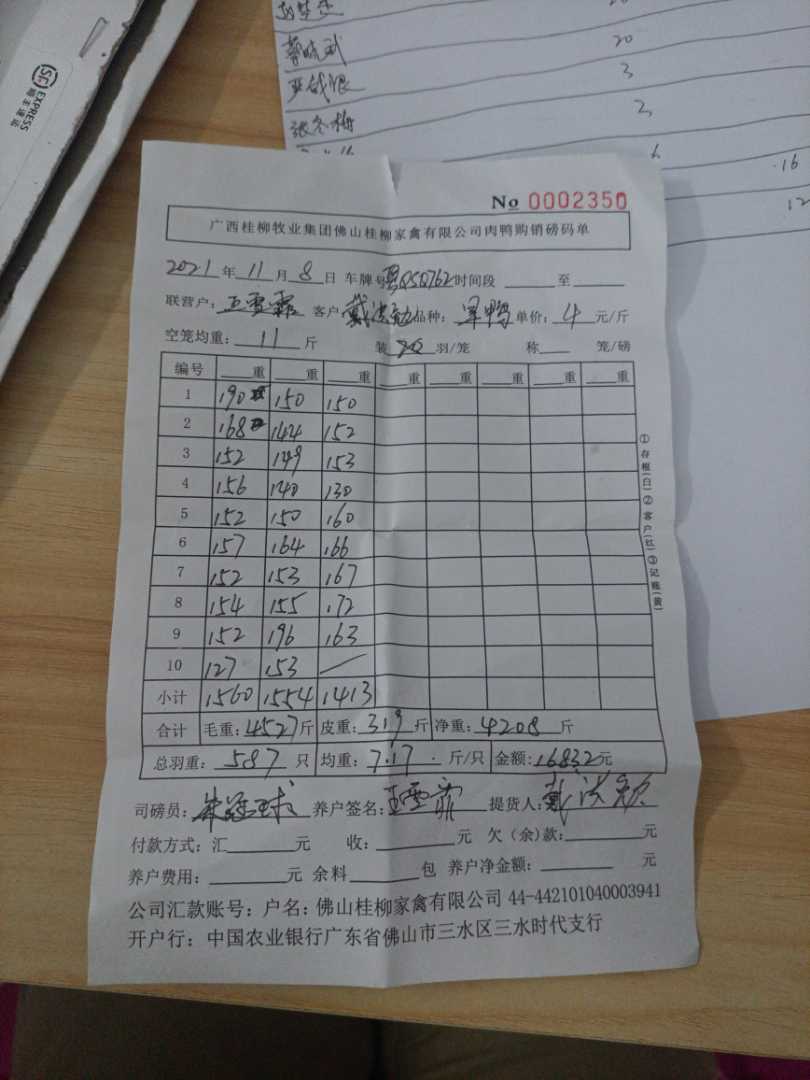 SF EXPRESS
顺丰速运
20
3
张冬梅 2
6 16
12
No 0002350
广西桂柳牧业集团佛山桂柳家禽有限公司肉鸭购销磅码单
2021年11月8日 车牌号粤Q5Q762时间段 至
联营户: 王雪霏 客户 品种: 单价: 4 元/斤
空笼均重: 11 斤 装 羽/笼 称 笼/磅
编号 重 重 重 重 重 重 重 重
1 190 150 150
2 168 144 152
3 152 149 153
4 156 140 130
5 152 150 160
6 157 164 166
7 152 153 167
8 154 155 172
9 152 196 163
10 127 153 /
小计 1560 1554 1413
合计 毛重: 4527斤 皮重: 319斤 净重: 4208斤
总羽重: 587 只 均重: 7.17 斤/只 金额: 16832元
司磅员: 养户签名: 王雪霏 提货人:
付款方式: 汇 元 收: 元 欠(余)款: 元
养户费用: 元 余料 包 养户净金额: 元
公司汇款账号: 户名: 佛山桂柳家禽有限公司 44-442101040003941
开户行: 中国农业银行广东省佛山市三水区三水时代支行
①存根(白)②客户(红)③记账(黄)